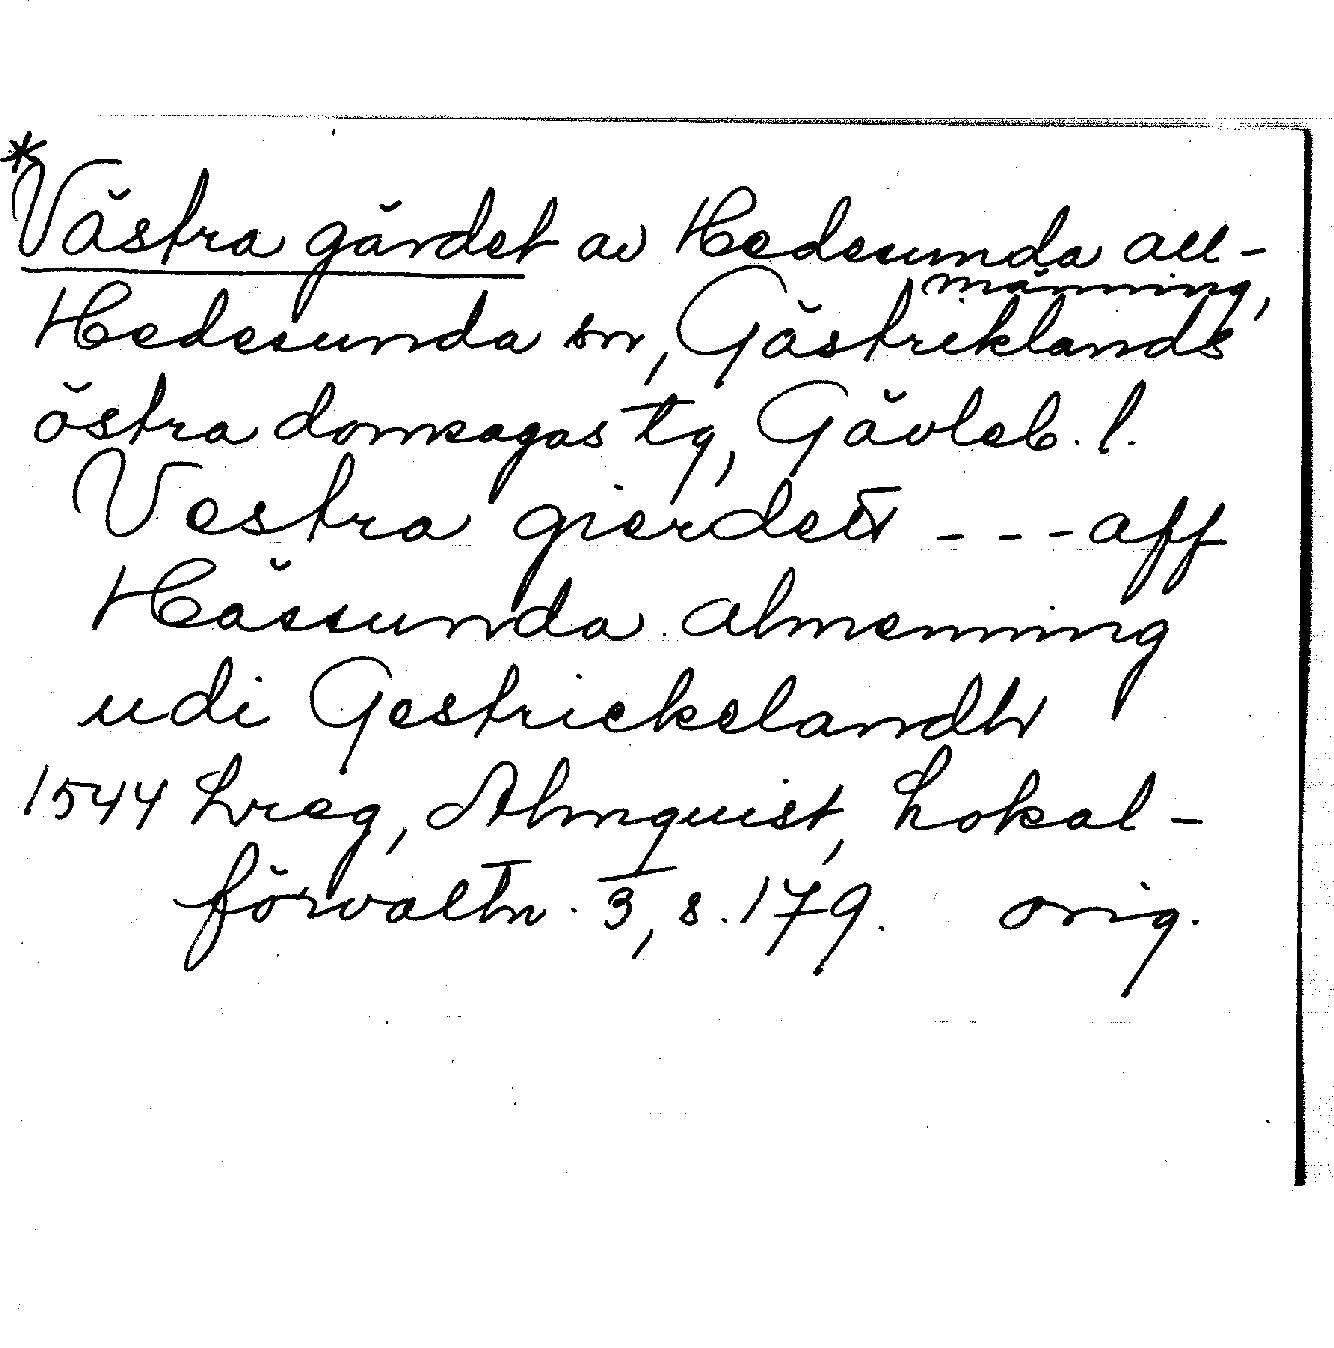 *Västra gärdet av Hedesunda all-
männing,
Hedesunda sn, Gästriklands
östra domsagas tg, Gävleb. l.
Vestra gierdett - - - aff
Hässunda almenning
udi Gestrickelandh
1544 Lreg, Almquist, Lokal-
förvaltn. 3, s. 179. orig.